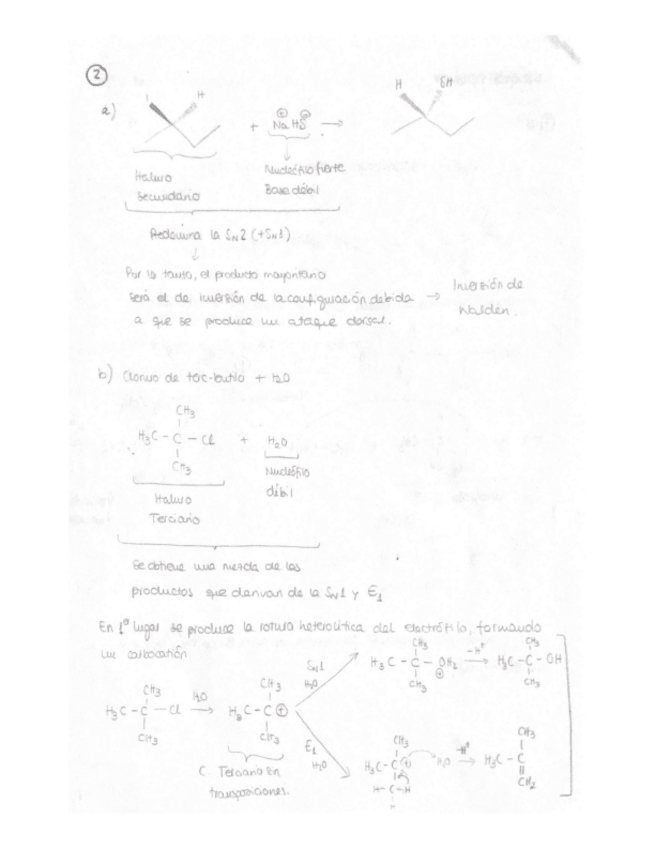 2
a)
I H
+ Na⊕ HS⊖ →
H SH
Haluro
Secundario
Nucleófilo fuerte
Base débil
Predomina la SN2 (+SN1)
↓
Por lo tanto, el producto mayoritario
será el de inversión de la configuración debida → Inversión de
a que se produce un ataque dorsal. Walden.
b) Cloruro de terc-butilo + H2O
CH3
H3C - C - Cl + H2O
CH3
Haluro
Terciario
Nucleófilo
débil
Se obtiene una mezcla de los
productos que derivan de la SN1 y E1
En 1º lugar se produce la rotura heterolítica del electrófilo, formando
un carbocatión
CH3
H3C - C - Cl H2O →
CH3
CH3
H3C - C ⊕
CH3
C Terciario sin
transposiciones.
SN1
H2O
CH3
H3C - C - OH2 ⊕
CH3
-H+ →
CH3
H3C - C - OH
CH3
E1
H2O
CH3
H3C - C (+) H2O
H - C - H
H
-H+ →
CH3
H3C - C
CH2